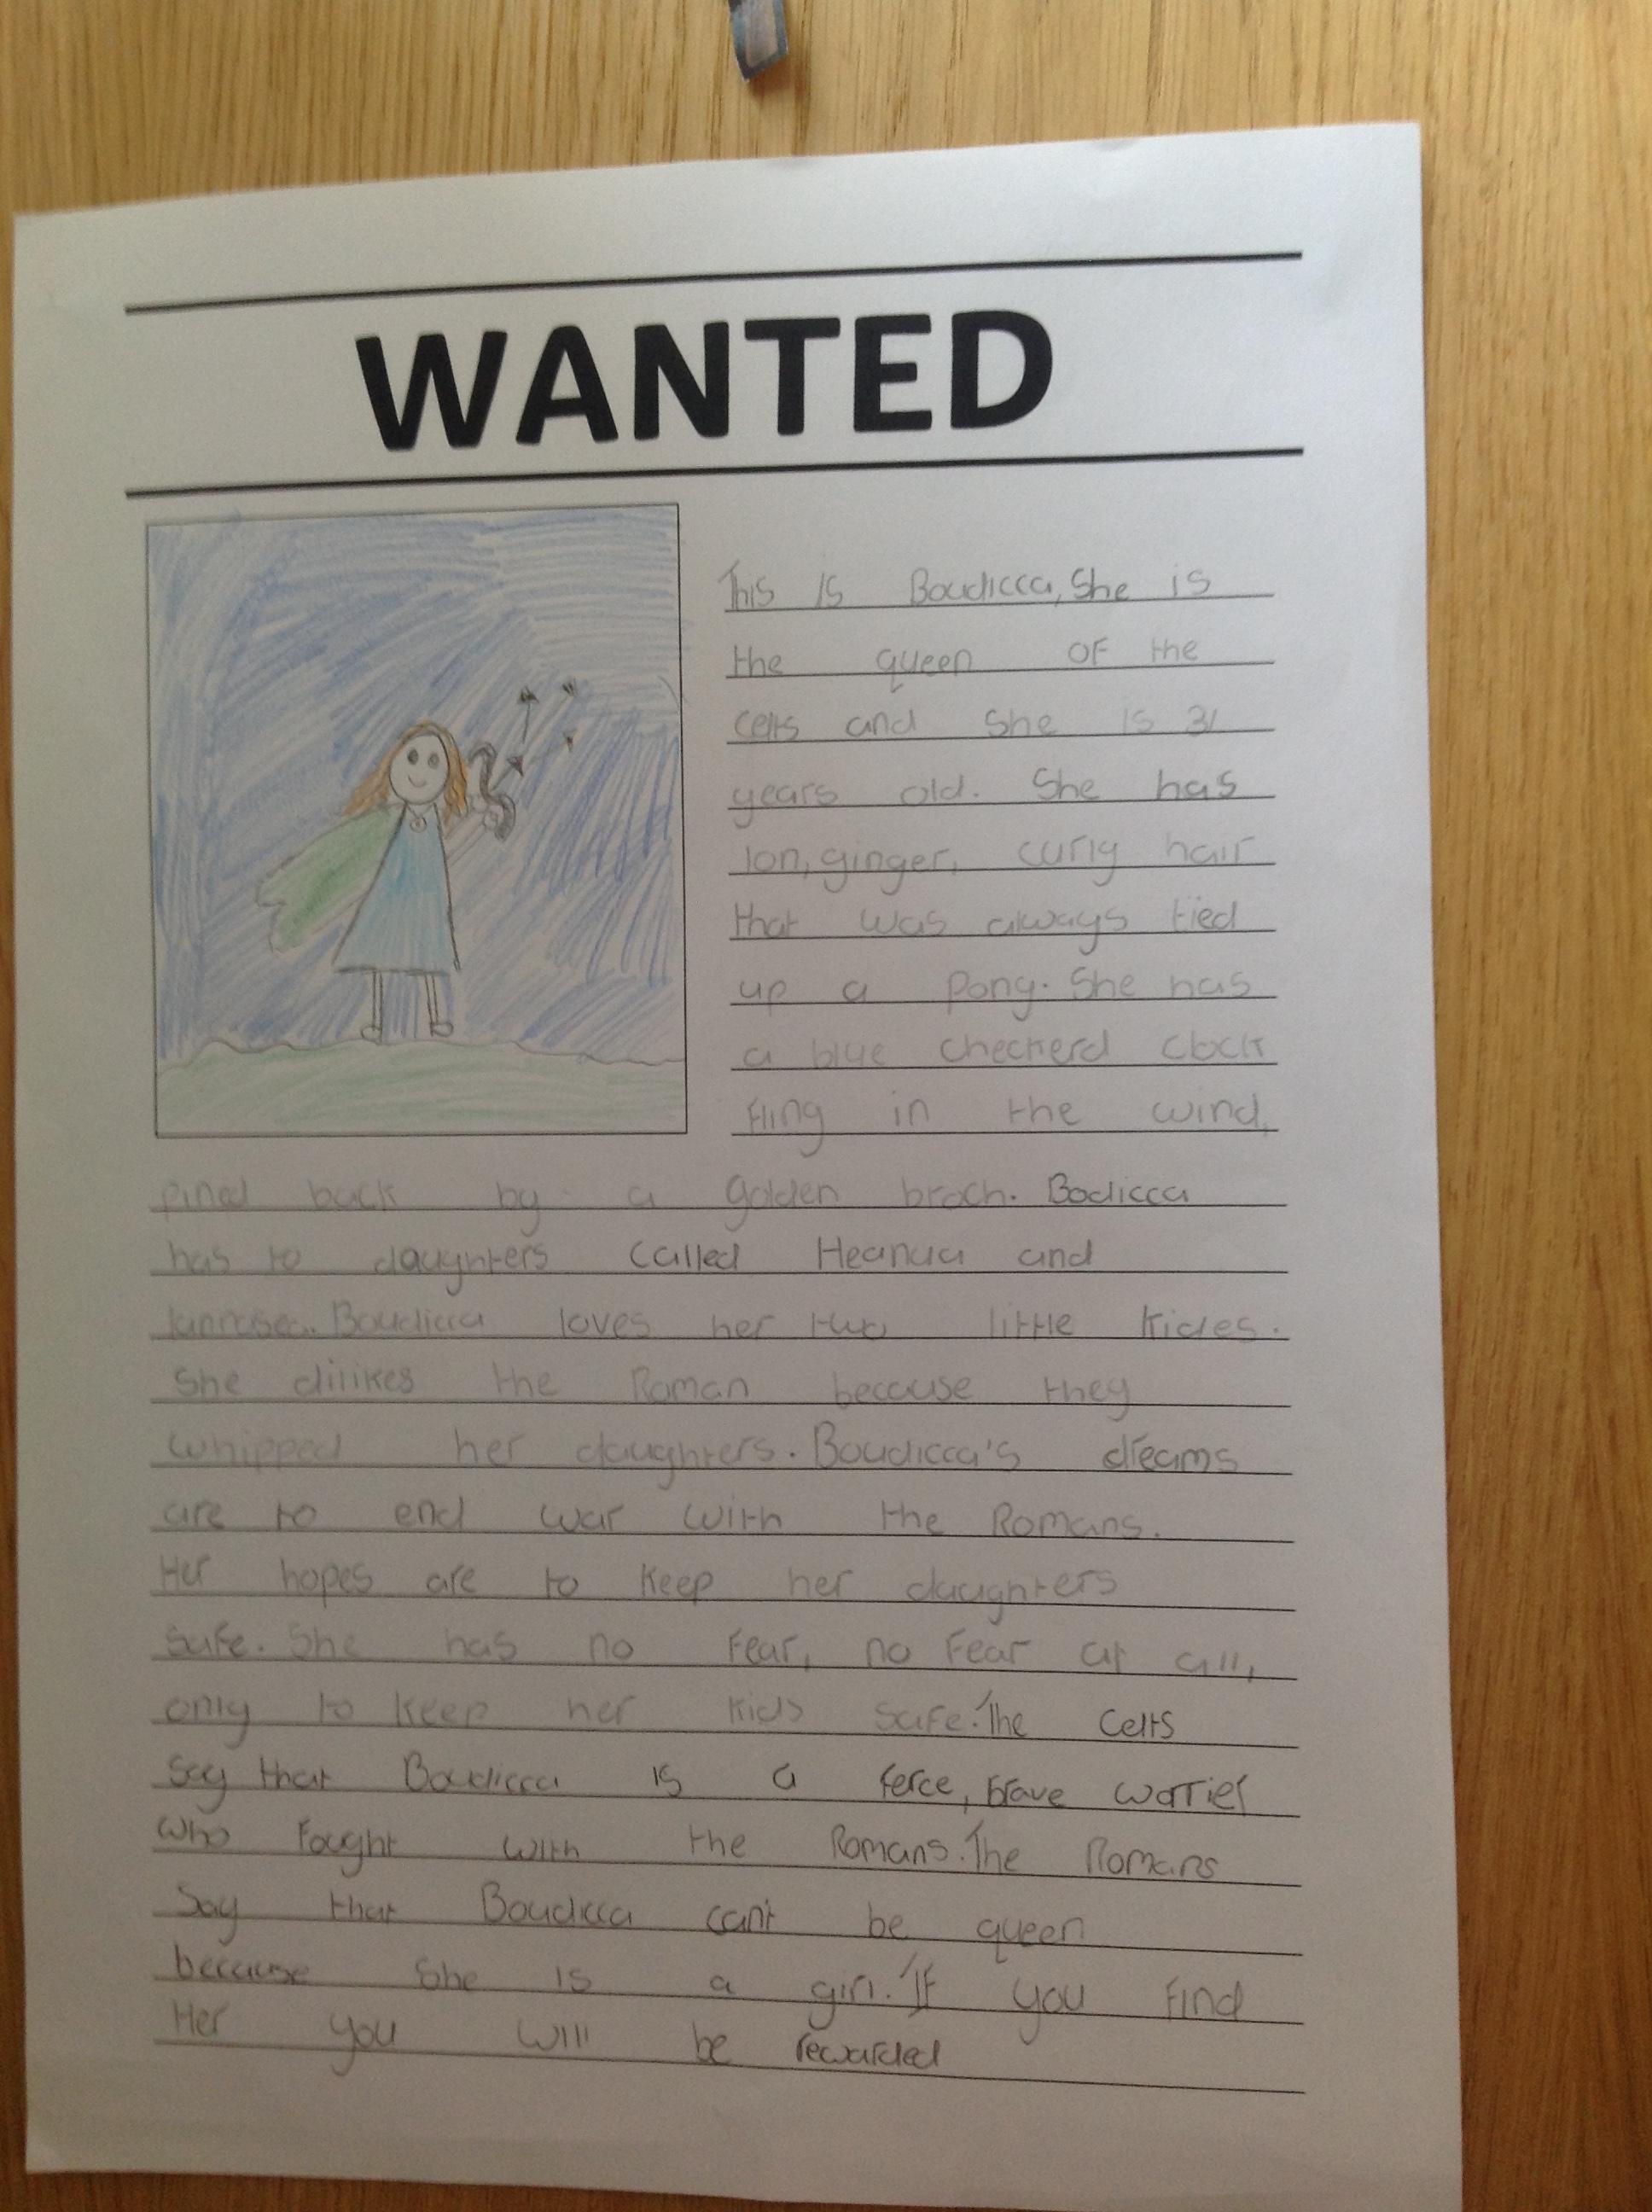 WANTED
This is Boudicca, She is
the queen of the
celts and she is 31
years old. She has
lon, ginger, curly hair
that was always tied
up a pony. She has
a blue checkerd clock
fling in the wind,
pined back by a golden broch. Bodicca
has to daughters called Heanua and
Boudicca loves her two little kides.
She dilikes the Roman because they
whipped her daughters. Boudicca's dreams
are to end war with the Romans.
Her hopes are to keep her daughters
safe. She has no fear, no fear at all,
only to keep her kids safe. The Celts
say that Boudicca is a ferce, brave worrier
who fought with the Romans. The Romans
Say that Boudicca can't be queen
because she is a girl. If you find
Her you will be rewarded